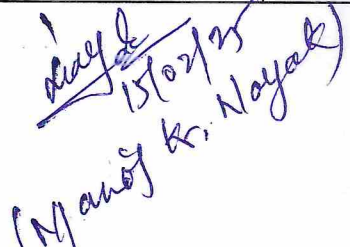 15/02/25
(Manoj Kr. Nayak)